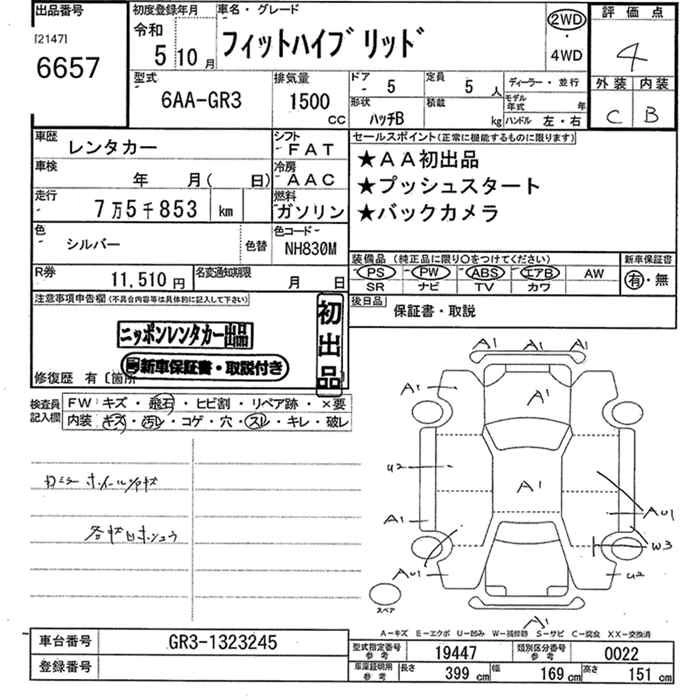 出品番号
[2147]
6657
初度登録年月
令和
5 10 月
車名・グレード
フィットハイブリッド
2WD
・
4WD
評価点
4
外装 内装
C B
型式
6AA-GR3
排気量
1500
CC
ドア 5
定員 5 人
形状 ハッチB
積載 kg
ディーラー・並行
モデル年式 年
ハンドル 左・右
車歴
レンタカー
シフト
FAT
車検
年 月( 日)
冷房
AAC
走行
7万5千853 km
燃料
ガソリン
色
シルバー
色替
色コード
NH830M
R券
11,510 円
名変通知期限
月 日
セールスポイント(正常に機能するものに限ります)
★AA初出品
★プッシュスタート
★バックカメラ
装備品 (純正品に限り○をつけてください)
PS PW ABS エアB AW
SR ナビ TV カワ
新車保証書
有・無
後日品
保証書・取説
注意事項申告欄(不具合内容等は具体的に記入して下さい)
ニッポンレンタカー出品
新車保証書・取説付き
初出品
修復歴 有 [箇所
検査員記入欄
FW: キズ・飛石・ヒビ割・リペア跡・×要
内装 キズ・汚レ・コゲ・穴・スレ・キレ・破レ
A1 A1 A1
A1 A1
U2
A1
A1
AU1
W3
AU1
U2
スペア
A1
A-キズ E-エクボ U-凹み W-補修跡 S-サビ C-腐食 XX-交換済
車台番号
GR3-1323245
登録番号
型式指定番号 参考
19447
類別区分番号 参考
0022
車庫証明用 参考
長さ 399 cm
幅 169 cm
高さ 151 cm